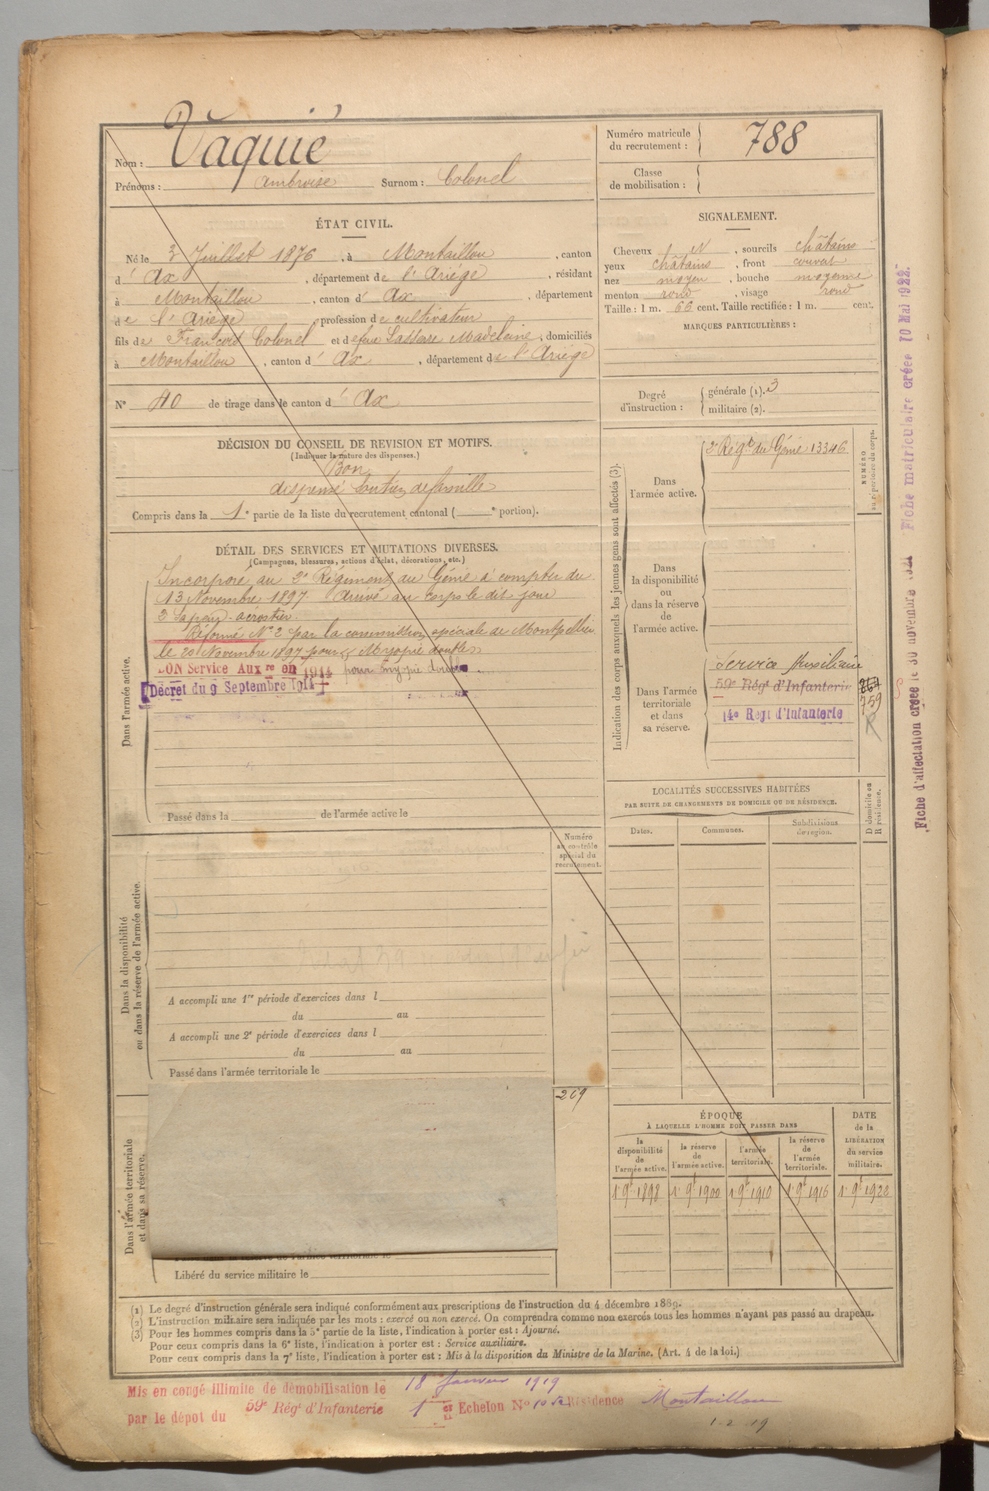 Nom : Vaquié
Prénoms : ambroise Surnom : Colonel
Numéro matricule du recrutement : 788
Classe de mobilisation :
ÉTAT CIVIL.
Né le 3 Juillet 1876, à Montaillou, canton
d' Ax, département de l'Ariège, résidant
à Montaillou, canton d' Ax, département
de l'Ariège, profession de cultivateur
fils de François Colonel et de feue Madeleine, domiciliés
à Montaillou, canton d' Ax, département de l'Ariège
N° 40 de tirage dans le canton d' Ax
SIGNALEMENT.
Cheveux N, sourcils châtains
yeux châtains, front couvert
nez moyen, bouche moyenne
menton rond, visage rond
Taille : 1 m. 66 cent. Taille rectifiée : 1 m. cent.
MARQUES PARTICULIÈRES :
Degré d'instruction : générale (1). 3
militaire (2).
DÉCISION DU CONSEIL DE REVISION ET MOTIFS.
(Indiquer la nature des dispenses.)
Bon
dispensé Soutien de famille
Compris dans la 1e partie de la liste du recrutement cantonal ( e portion).
DÉTAIL DES SERVICES ET MUTATIONS DIVERSES.
(Campagnes, blessures, actions d'éclat, décorations, etc.)
Dans l'armée active.
Incorporé au 2e Régiment du Génie à compter du
13 Novembre 1897 Arrivé au corps le dit jour
2e Sapeur-aérostier.
Réformé N° 2 par la commission spéciale de Montpellier
le 20 Novembre 1897 pour Myopie double
BON Service Auxre en 1914 pour myopie
Décret du 9 Septembre 1914
Passé dans la de l'armée active le
Indication des corps auxquels les jeunes gens sont affectés (3).
NUMÉRO au répertoire du corps.
Dans l'armée active.
2e Régt du Génie 13346
Dans la disponibilité ou dans la réserve de l'armée active.
Dans l'armée territoriale et dans sa réserve.
Service Auxiliaire
59e Régt d'Infanterie
14e Régt d'Infanterie
759
LOCALITÉS SUCCESSIVES HABITÉES
PAR SUITE DE CHANGEMENTS DE DOMICILE OU DE RÉSIDENCE.
Dates. Communes. Subdivisions de région. D domicile ou R résidence.
Numéro au contrôle spécial du recrutement.
Dans la disponibilité
ou dans la réserve de l'armée active.
A accompli une 1re période d'exercices dans l
du au
A accompli une 2e période d'exercices dans l
du au
Passé dans l'armée territoriale le
269
Dans l'armée territoriale
et dans sa réserve.
Libéré du service militaire le
ÉPOQUE
À LAQUELLE L'HOMME DOIT PASSER DANS
la disponibilité de l'armée active.
la réserve de l'armée active.
l'armée territoriale.
la réserve de l'armée territoriale.
DATE de la LIBÉRATION du service militaire.
1 9e 1898 1 9e 1900 1 9e 1910 1 9e 1916
(1) Le degré d'instruction générale sera indiqué conformément aux prescriptions de l'instruction du 4 décembre 1889.
(2) L'instruction militaire sera indiquée par les mots : exercé ou non exercé. On comprendra comme non exercés tous les hommes n'ayant pas passé au drapeau.
(3) Pour les hommes compris dans la 5e partie de la liste, l'indication à porter est : Ajourné.
Pour ceux compris dans la 6e liste, l'indication à porter est : Service auxiliaire.
Pour ceux compris dans la 7e liste, l'indication à porter est : Mis à la disposition du Ministre de la Marine. (Art. 4 de la loi.)
Mis en congé illimité de démobilisation le 18 Janvier 1919
par le dépot du 59e Régt d'Infanterie 1er Echelon N° Résidence Montaillou
1-2-19
Fiche d'affectation créée le 30 novembre 1921 Fiche matriculaire créée 10 Mai 1922.